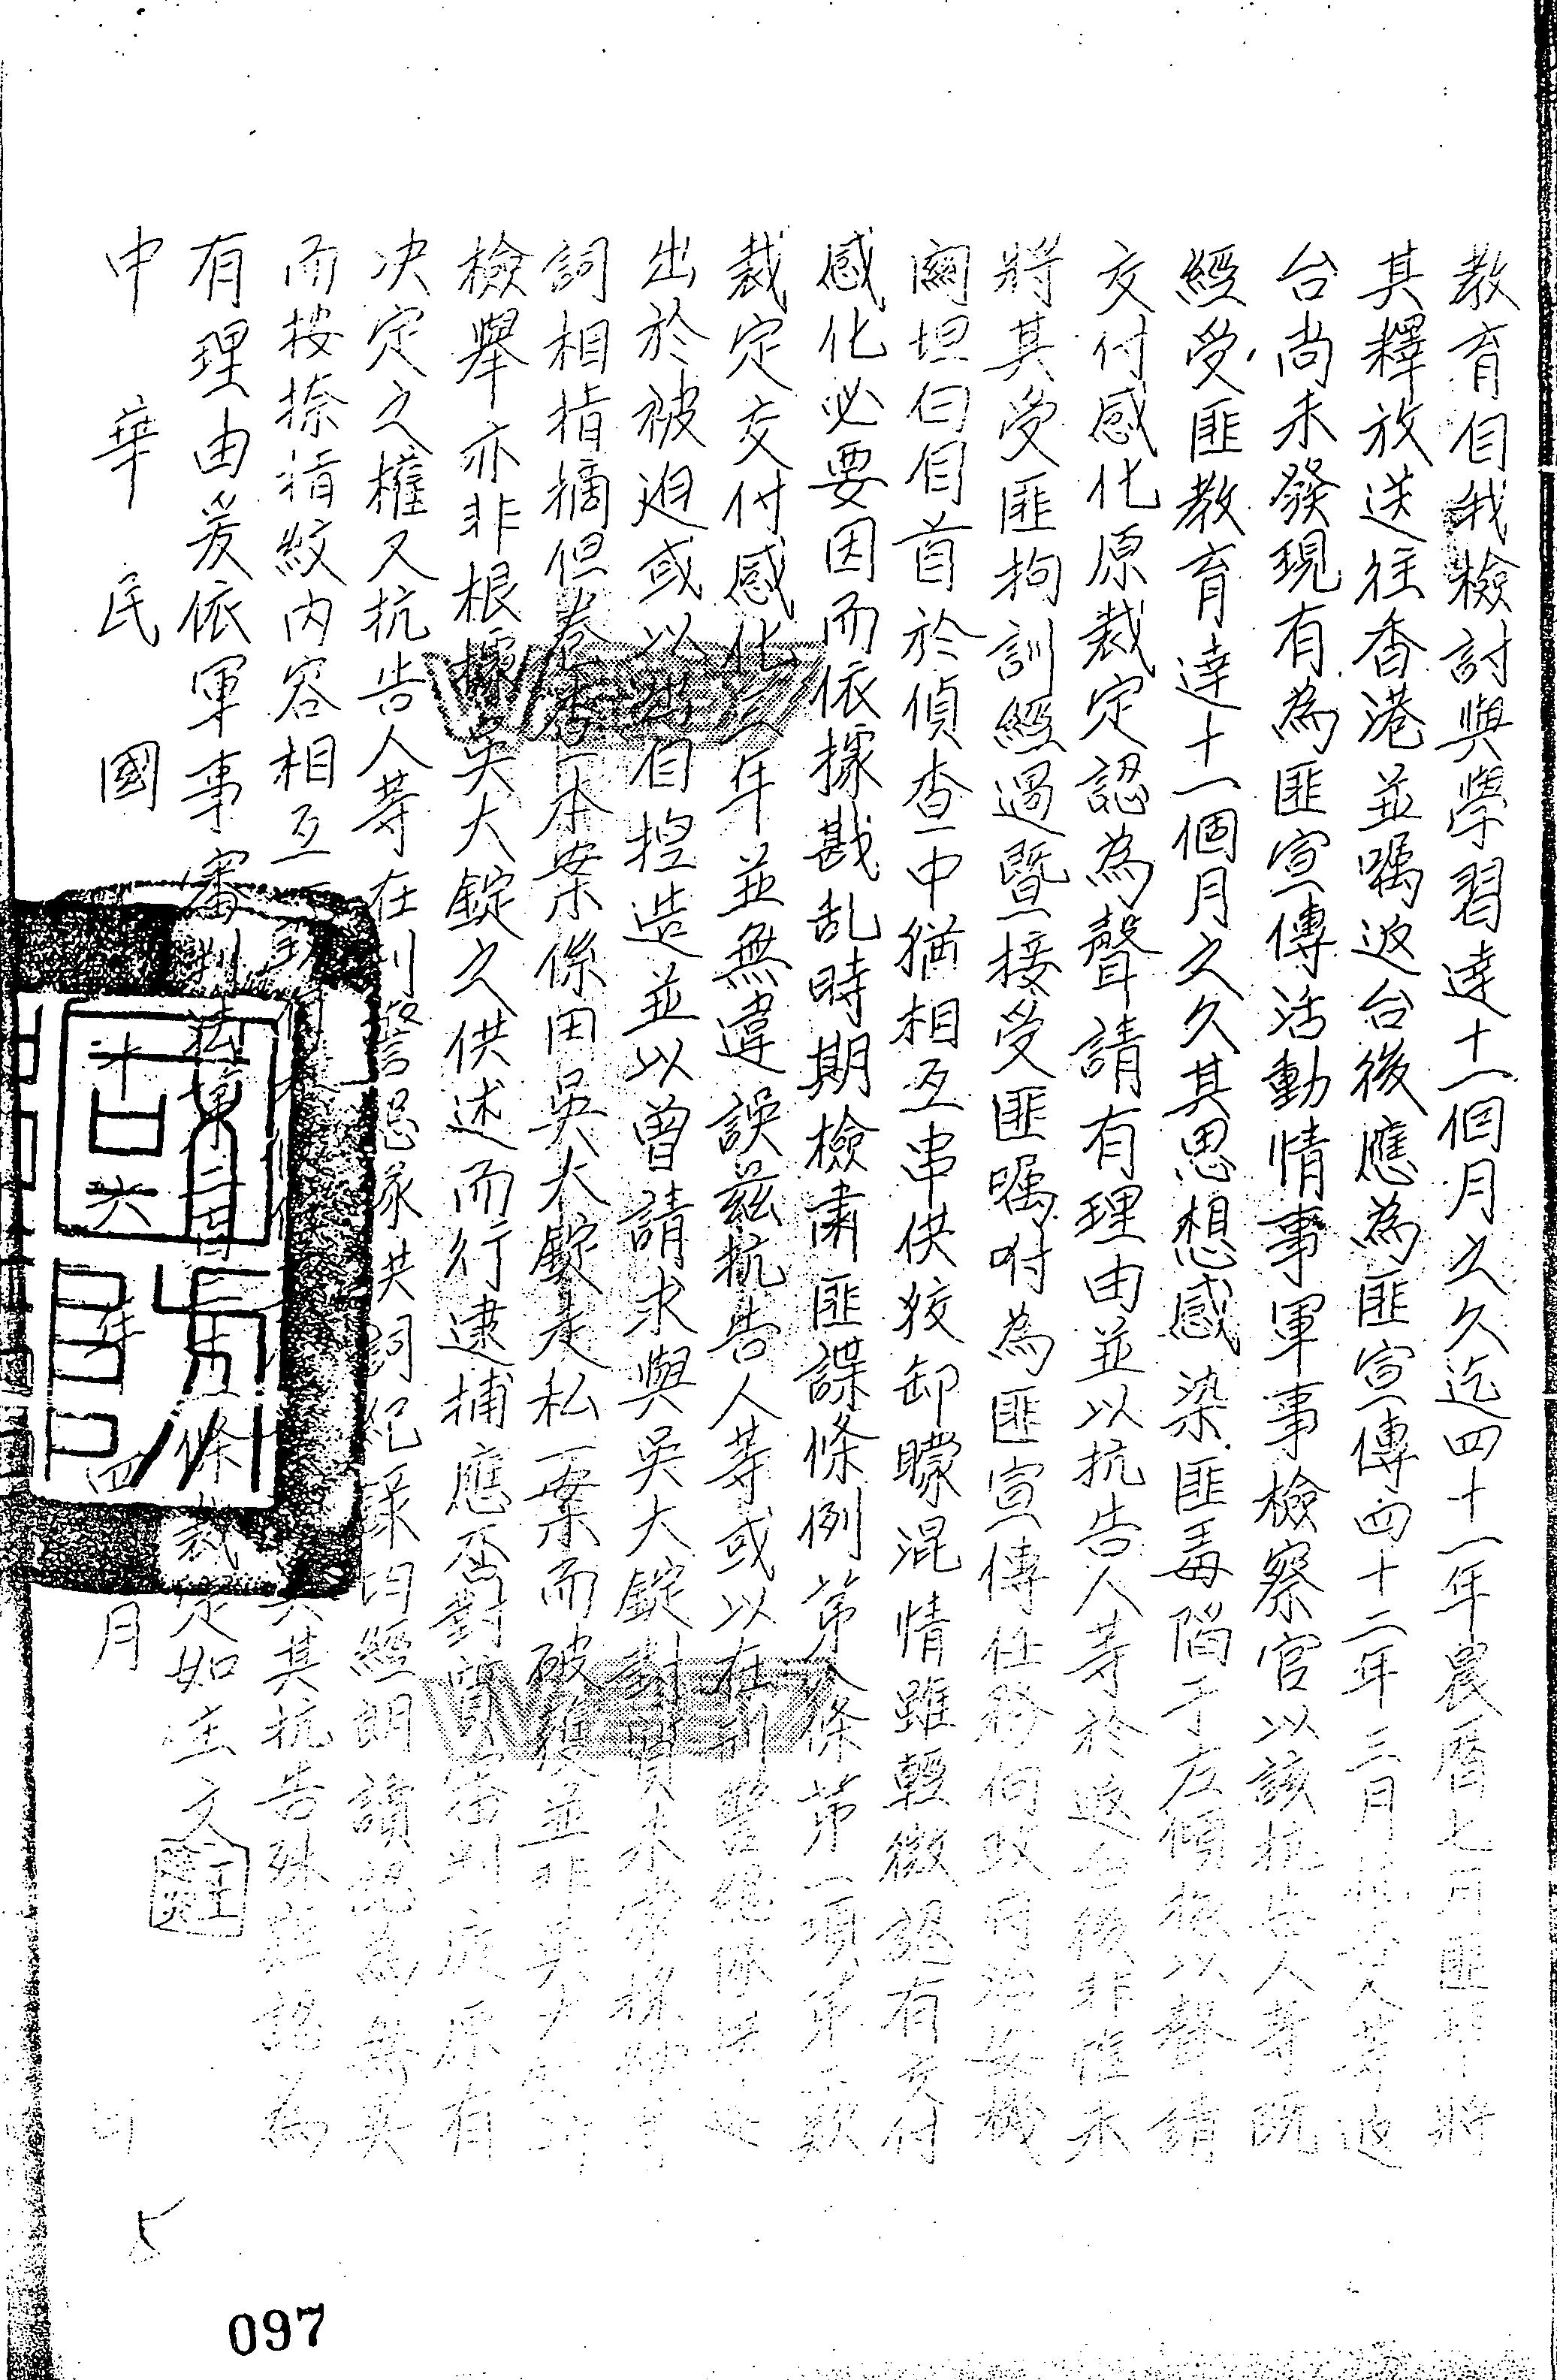 教育自我檢討與學習達十一個月之久迄四十一年農曆七月匪幫將
其釋放送往香港並囑返台後應為匪宣傳四十二年三月抗告人等返
台尚未發現有為匪宣傳活動情事軍事檢察官以該抗告人等既
經受匪教育達十一個月之久其思想感染匪毒陷于左傾報以聲請
交付感化原裁定認為聲請有理由並以抗告人等於返台後非惟未
將其受匪拘訓經過暨接受匪囑咐為匪宣傳任務向政府治安機
關坦白自首於偵查中猶相互串供狡卸矇混情雖輕微認有交付
感化必要因而依據戡乱時期檢肅匪諜條例第八條第一項第二款
裁定交付感化三年並無違誤茲抗告人等或以在刑警總隊供
出於被迫或以出自捏造並以曾請求與吳大錠對質未蒙採納
詞相指摘但卷查本案係因吳大錠走私一案而破獲並非吳大錠所
檢舉亦非根據吳大錠之供述而行逮捕應否對質審判庭原有
決定之權又抗告人等在刑警總隊供詞紀錄均經朗讀認為無異
而按捺指紋內容相互 其抗告殊難認為
有理由爰依軍事審判法第二百 條裁定如主文
中華民國 年四月 日
5
097